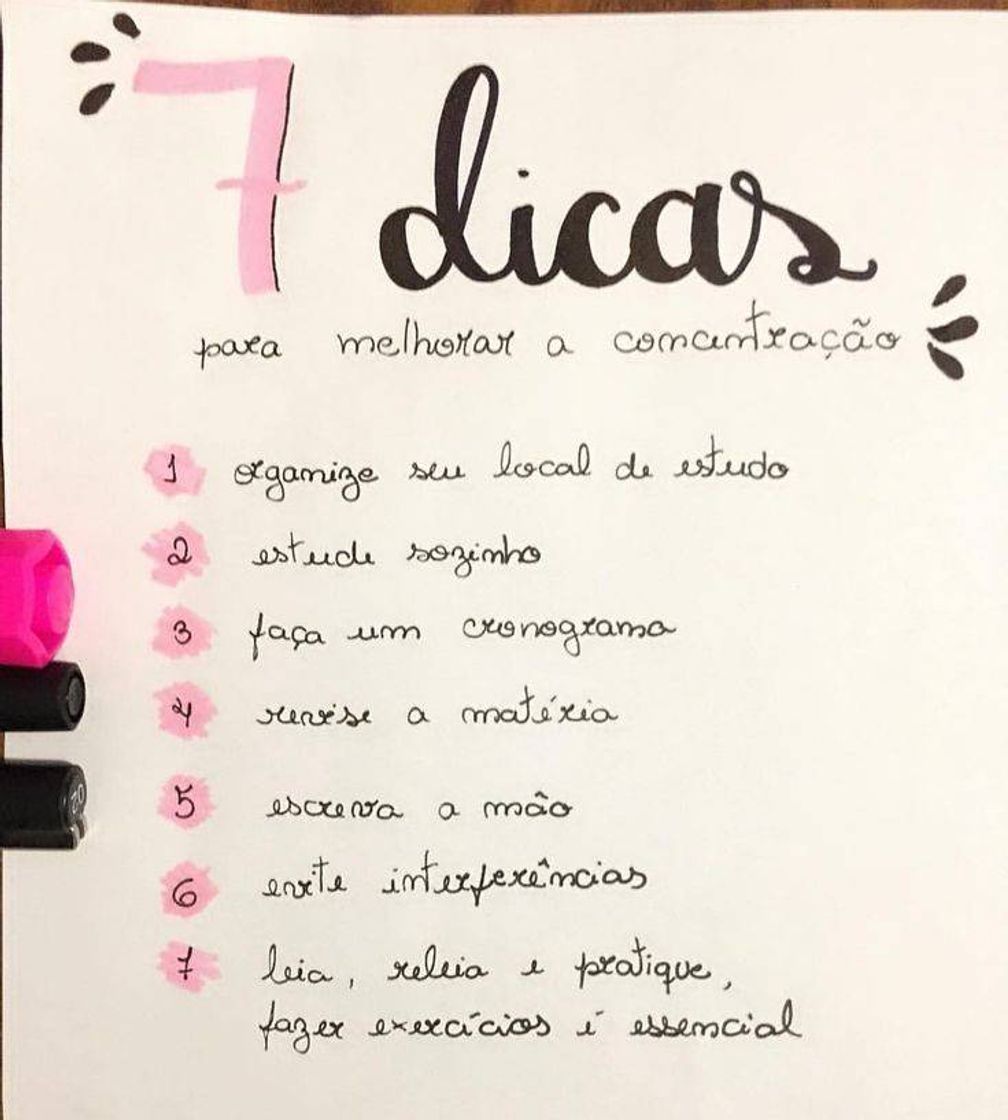 7 dicas
para melhorar a concentração
1 organize seu local de estudo
2 estude sozinho
3 faça um cronograma
4 revise a matéria
5 escreva a mão
6 evite interferências
7 leia, releia e pratique,
fazer exercícios é essencial
02